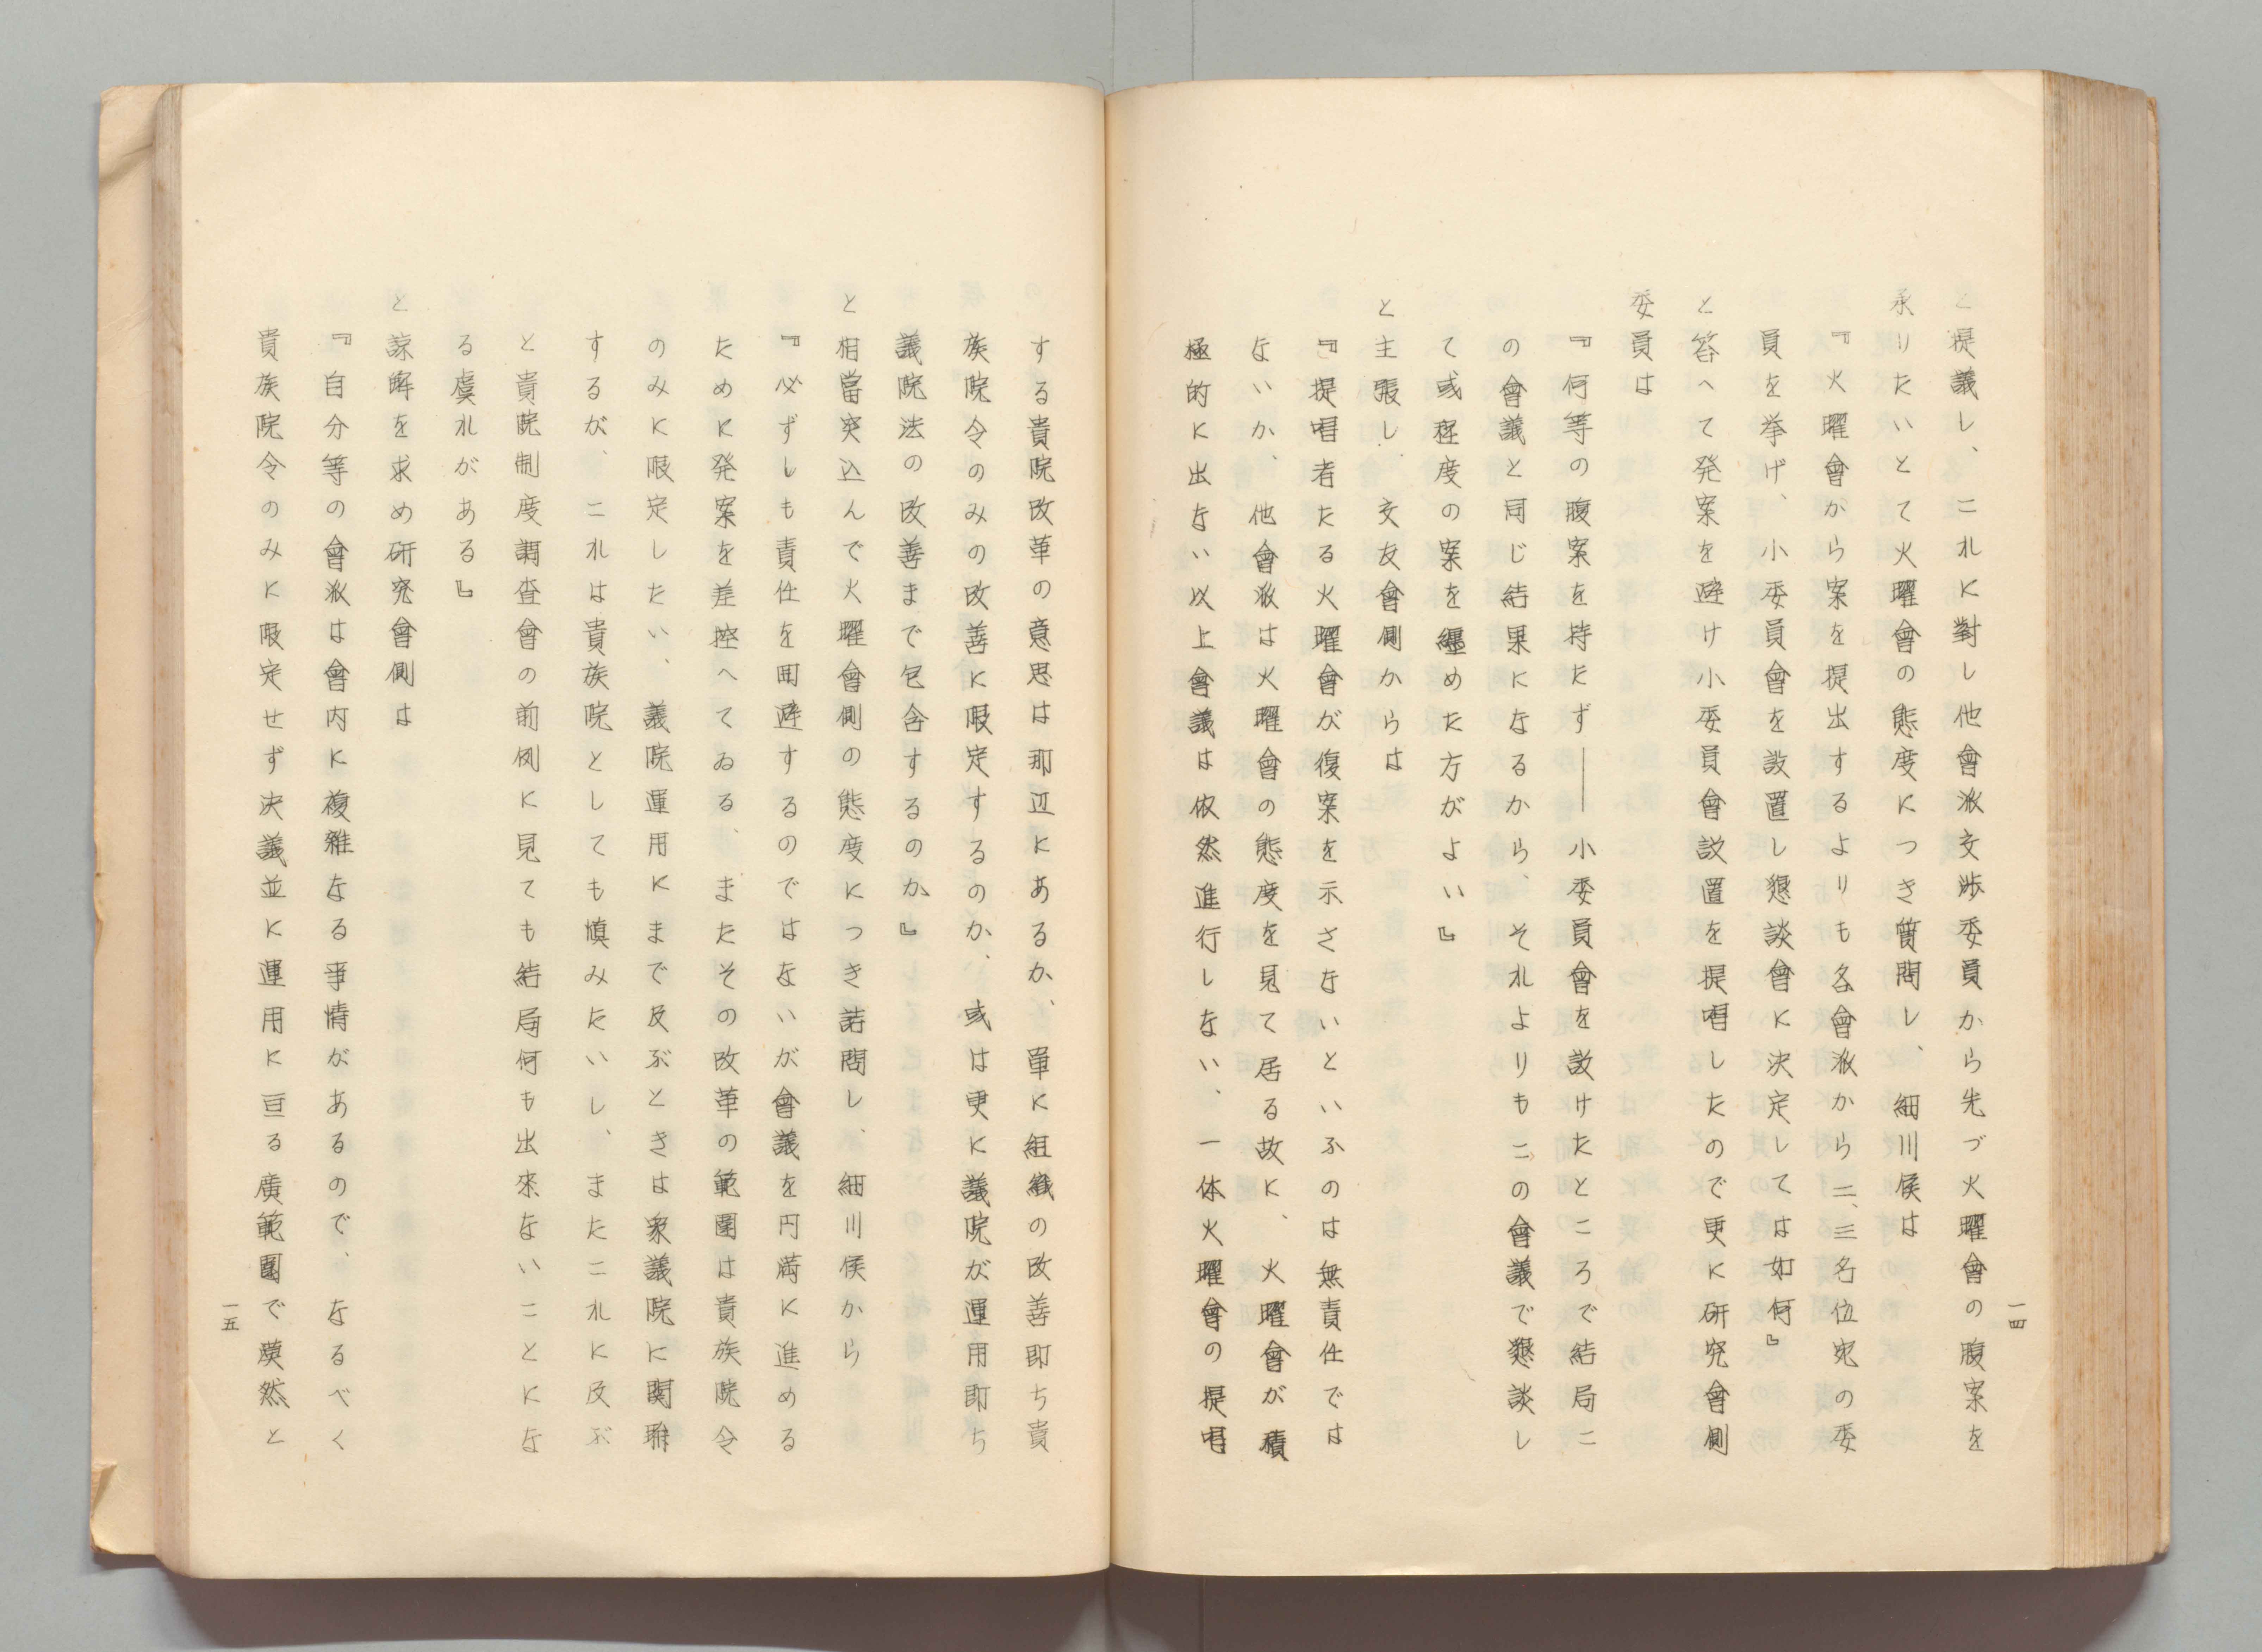 と提議し、これに對し他會派交渉委員から先づ火曜會の腹案を
承りたいとて火曜會の態度につき質問し、細川侯は
『火曜會から案を提出するよりも各會派から二、三名位宛の委
員を挙げ、小委員會を設置し懇談會に決定しては如何』
と答へて発案を避け小委員會設置を提唱したので更に研究會側
委員は
『何等の腹案を持たず――小委員會を設けたところで結局こ
の會議と同じ結果になるから、それよりもこの會議で懇談し
て或程度の案を纒めた方がよい』
と主張し、交友會側からは
『提唱者たる火曜會が復案を示さないといふのは無責任では
ないか、他會派は火曜會の態度を見て居る故に、火曜會が積
極的に出ない以上會議は依然進行しない、一体火曜會の提唱
一四
する貴院改革の意思は那辺にあるか、単に組織の改善即ち貴
族院令のみの改善に限定するのか、或は更に議院が運用即ち
議院法の改善まで包含するのか』
と相當突込んで火曜會側の態度につき詰問し、細川侯から
『必ずしも責任を回避するのではないが會議を円満に進める
ために発案を差控へてゐる、またその改革の範囲は貴族院令
のみに限定したい、議院運用にまで及ぶときは衆議院に関聯
するが、これは貴族院としても慎みたいし、またこれに及ぶ
と貴院制度調査會の前例に見ても結局何も出來ないことにな
る虞れがある』
と諒解を求め研究會側は
『自分等の會派は會内に複雜なる事情があるので、なるべく
貴族院令のみに限定せず決議並に運用に亘る廣範圍で漠然と
一五